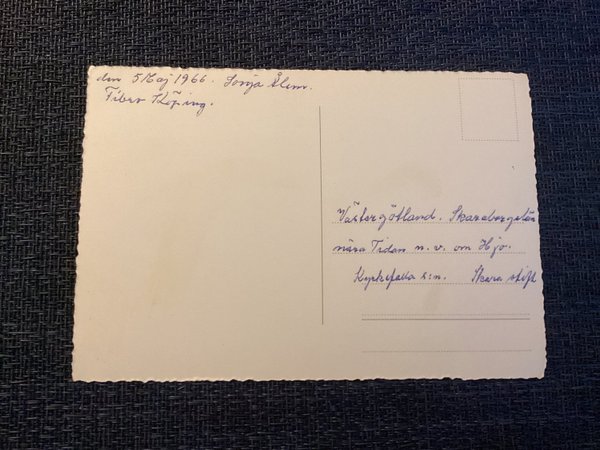 den 5 Maj 1966. Sonja Ålem.
Tibro Köping.
Västergötland. Skaraborgslän
nära Tidan n.v. om Hjo.
Kyrkefalla s:n. Skara stift